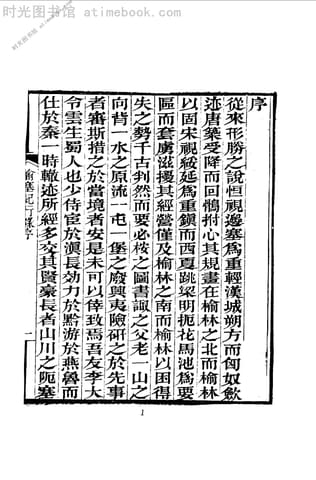 时光图书馆 - atimebook.com
序
從來形勝之說恒視邊塞爲重輕漢城朔方而匈奴飲
迹唐築受降而回鶻拊心其規畫在榆林之北而榆林
以固宋視綏延爲重鎭而西夏跳梁明扼花馬池爲要
區而套虜滋擾其經營僅及榆林之南而榆林以困得
失之勢千古判然而要必桉之圖書諏之父老一山之
向背一水之原流一屯一堡之廢興夷險研之於先事
者審斯措之於當境者安是未可以倖致焉吾友李大
令雲生蜀人也少侍宦於滇長効力於黔游於燕魯而
仕於秦一時轍迹所經多交其賢豪長者山川之阨塞
榆塞紀行錄序
一
1
时光图书馆 - atimebook.com